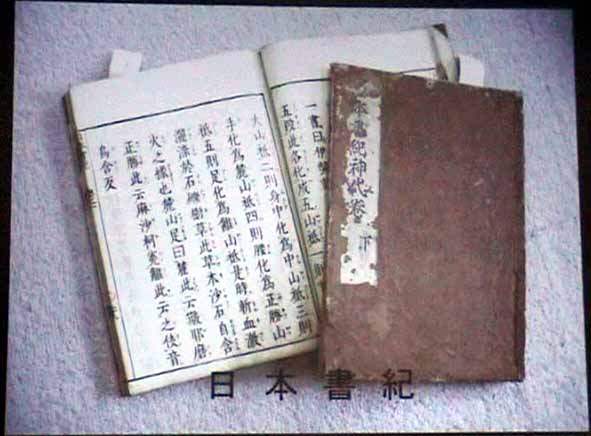 一書曰伊弉
五段此各化成五山祇一則
大山祇二則身中化為中山祇三則
手化為麓山祇四則腰化為正勝山
祇五則足化為離山祇是時斬血激
灑染於石礫樹草此草木沙石自含
火之縁也麓山足曰麓此云簸耶磨
正勝此云麻沙柯菟離此云之伎音
烏含反
本書紀神代卷 下
日本書紀